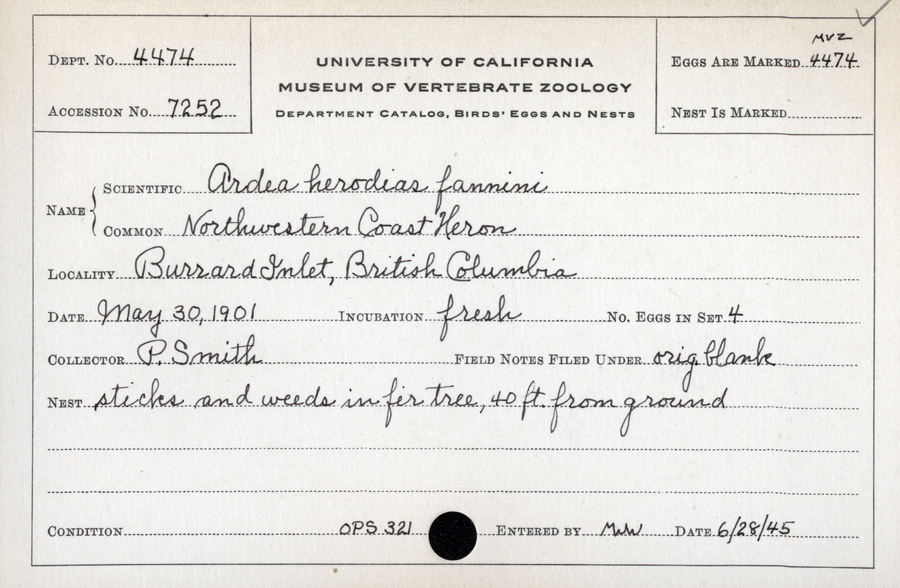 MVZ
DEPT. No. 4474
UNIVERSITY OF CALIFORNIA
EGGS ARE MARKED 4474
MUSEUM OF VERTEBRATE ZOOLOGY
ACCESSION No. 7252
DEPARTMENT CATALOG, BIRDS' EGGS AND NESTS
NEST IS MARKED
NAME SCIENTIFIC Ardea herodias fannini
COMMON Northwestern Coast Heron
LOCALITY Burrard Inlet, British Columbia
DATE May 30, 1901 INCUBATION fresh No. EGGS IN SET 4
COLLECTOR P. Smith FIELD NOTES FILED UNDER orig. blank
NEST sticks and weeds in fir tree, 40 ft. from ground
CONDITION OPS 321 ENTERED BY DATE 6/28/45